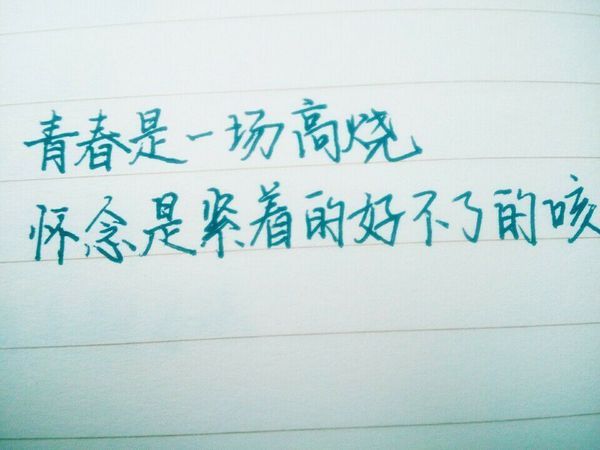 青春是一场高烧
怀念是紧着的好不了的咳